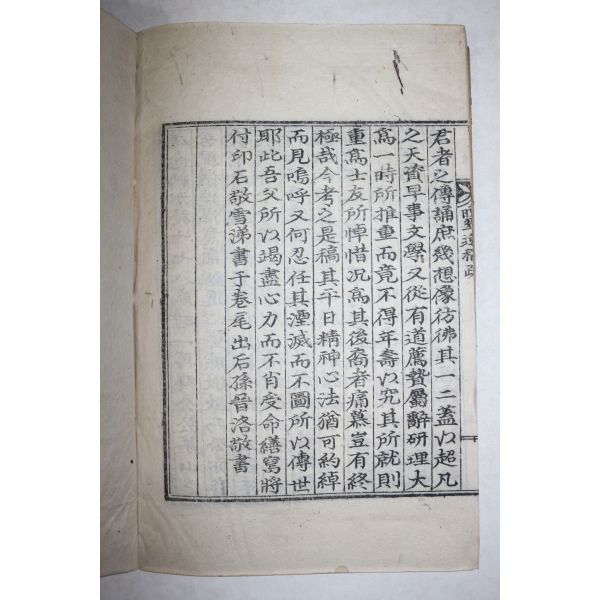 君者之傳誦庶幾想像彷彿其一二蓋以超凡
之天資早事文學又從有道薦贄屬辭研理大
爲一時所推重而竟不得年壽以究其所就則
重爲士友所悼惜况爲其後裔者痛慕豈有終
極哉今考之是稿其平日精神心法猶可約綽
而見嗚呼又何忍任其湮滅而不圖所以傳世
耶此吾父所以竭盡心力而不肖受命繕寫將
付印石敬雪涕書于卷尾出后孫晉洛敬書